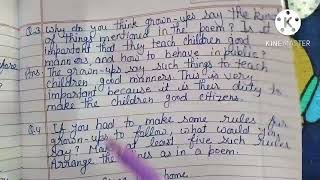 Q.3 Why do you think grown-ups say the kind
of things mentioned in the poem? Is it
important that they teach children good
manners, and how to behave in public?
Ans. The grown-ups say such things to teach
children good manners. This is very
important because it is their duty to
make the children good citizens.
Q.4 If you had to make some rules for
grown-ups to follow, what would you
say? Make at least five such rules
Arrange the lines as in a poem.
home
KINEMASTER